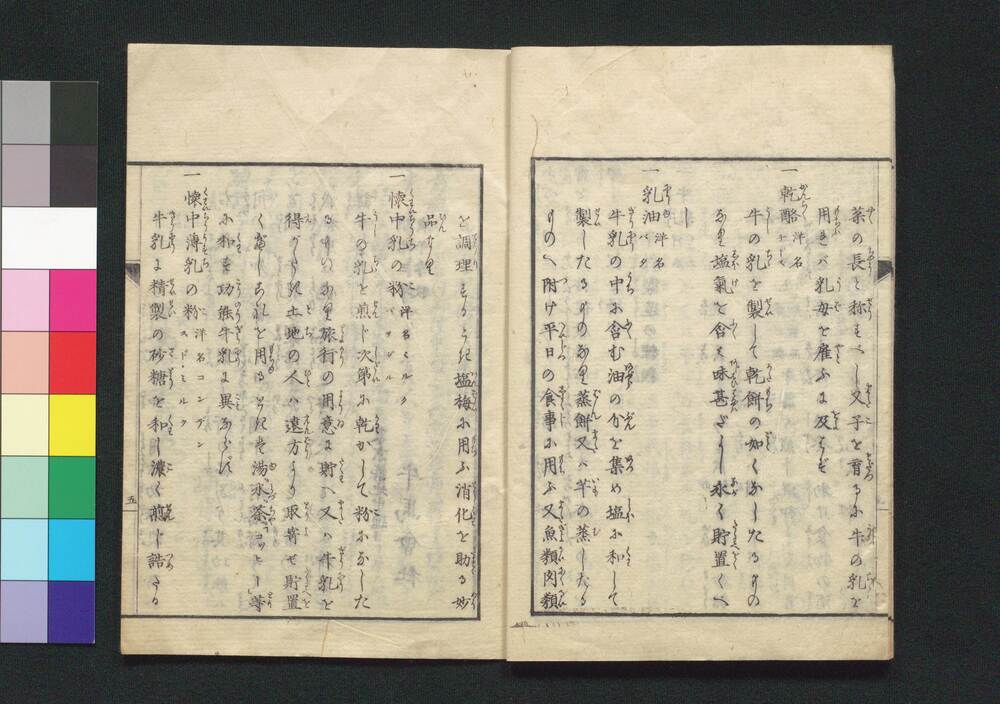 薬の長と称すべし又子を育るに牛の乳を
用ゆれバ乳母を雇ふに及ばず
一 乾酪 洋名チーズ
牛の乳を製して乾餅の如くなしたるもの
なり塩氣を含て味甚だよし永く貯置くべ
し
一 乳油 洋名バタ
牛乳の中に含む油の分を集め塩に和して
製したるものなり蒸餅又ハ芋の蒸したる
ものへ附け平日の食事に用ふ又魚類肉類
を調理するとき塩梅に用ふ消化を助る妙
品なり
一 懐中乳の粉 洋名ミルクパヲダル
牛の乳を煎じ次第に乾かして粉になした
るものなり旅行の用意に貯へ又ハ牛乳を
得がたき土地の人ハ遠方より取寄せ貯置
くべしこれを用るときは湯水茶コッヒー等
に和す功能牛乳に異ならず
一 懐中薄乳の粉 洋名コンデンスドミルク
牛乳に精製の砂糖を和し濃く煎じ詰たる
五